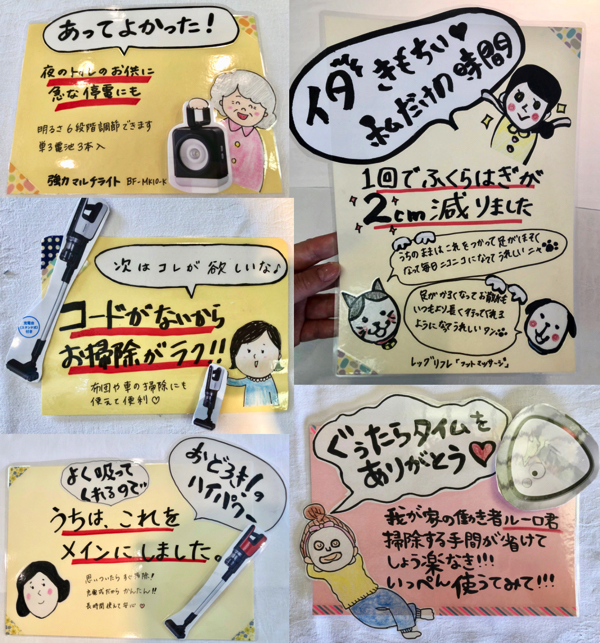 あってよかった!
夜のトイレのお供に
急な停電にも
明るさ6段階調節できます
単3電池3本入
強力マルチライト BF-MK10-K
イタきもちい♥
私だけの時間
1回でふくらはぎが
2cm減りました
うちのままはこれをつかって足がほそく
なって毎日ニコニコになってうれしいニャ
足がかるくなってお散歩
いつもより長く行ってくれる
ようになってうれしいワン
レッグリフレ「フットマッサージ」
次はコレが欲しいな♪
コードがないから
お掃除がラク!!
布団や車の掃除にも
使えて便利♡
よく吸って
くれるので
おどろき!の
ハイパワー
うちは、これを
メインにしました。
思いついたらすぐ掃除!
充電式だからかんたん!!
長時間使えて安心♥
ぐぅたらタイムを
ありがとう♥
我が家の働き者ルーロ君
掃除する手間が省けて
しょう楽なき!!!
いっぺん使うてみて!!!